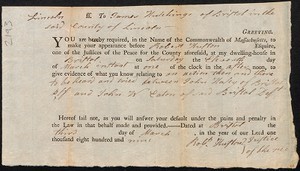 Lincoln ss. To James Hutchings of Bristol in the
said County of Lincoln
GREETING.
YOU are hereby required, in the Name of the Commonwealth of Massachusetts, to
make your appearance before Robert Huston Esquire,
one of the Justices of the Peace for the County aforesaid, at my dwelling
in Bristol on Saturday the eleventh day of
March instant at one of the clock in the afternoon, to
give evidence of what you know relating to an action then and there
to be heard and tried between John
off and John W. of said Bristol Deft
Hereof fail not, as you will answer your default under the pains and penalty in
the Law in that behalf made and provided. DATED at Bristol the
third day of March in the year of our Lord one
thousand eight hundred and nine
Robt Huston Justice
of the Peace